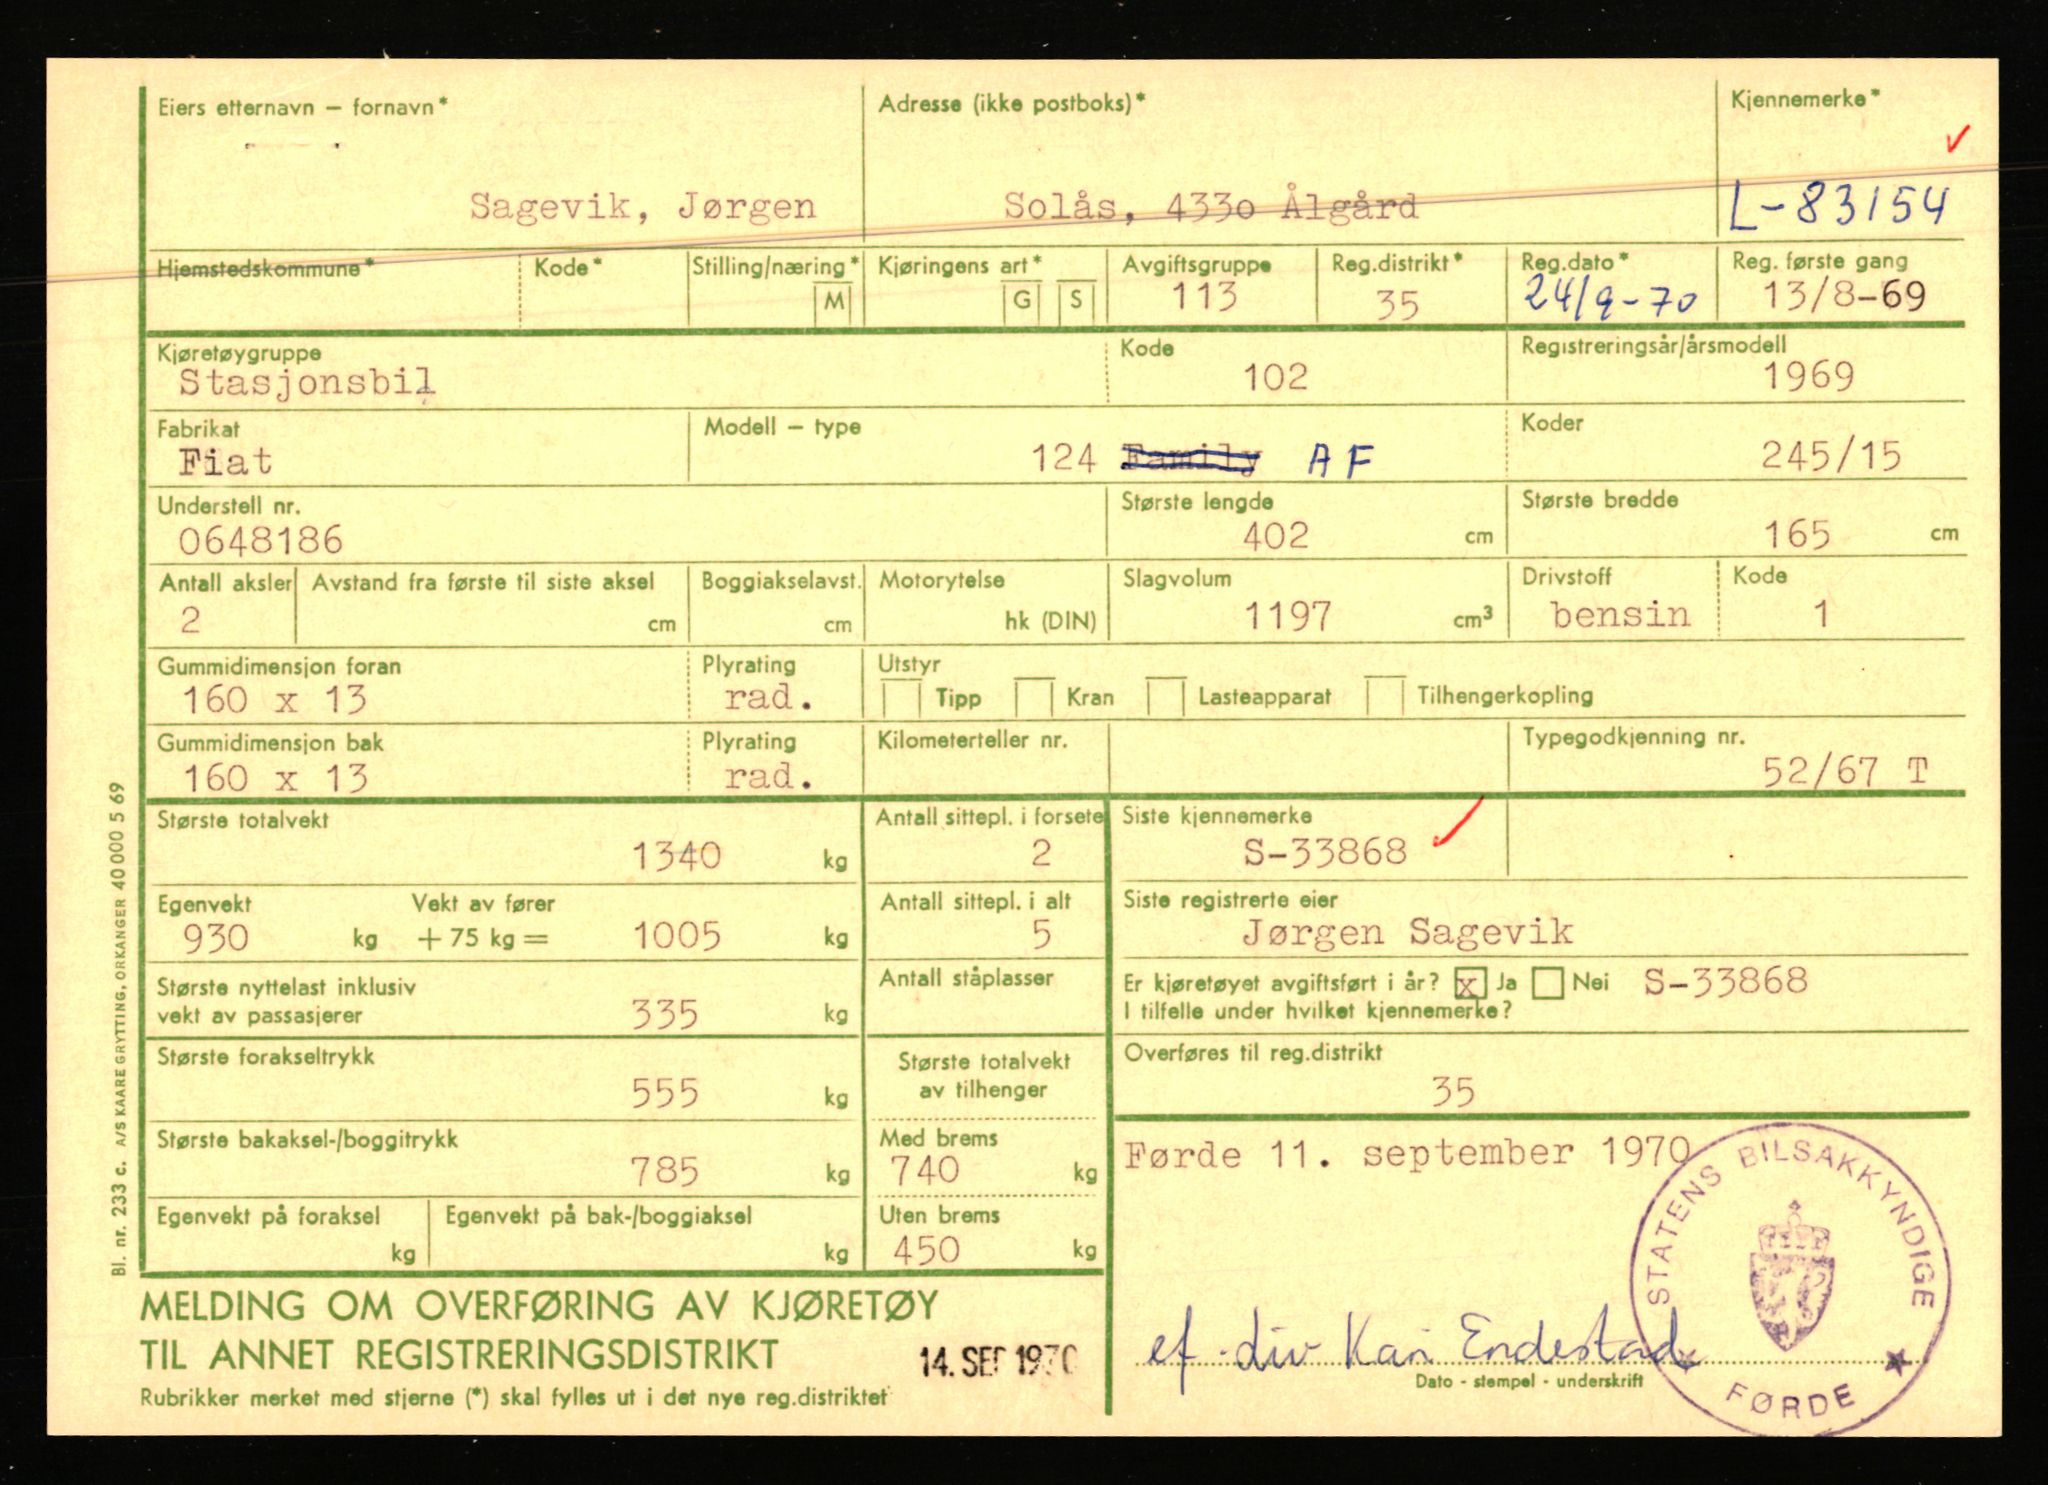 Eiers etternavn – fornavn* Adresse (ikke postboks)* Kjennemerke*
Sagevik, Jørgen Solås, 4330 Ålgård L-83154
Hjemstedskommune* Kode* Stilling/næring* Kjøringens art* Avgiftsgruppe Reg.distrikt* Reg.dato* Reg. første gang
M G S 113 35 24/9-70 13/8-69
Kjøretøygruppe Kode Registreringsår/årsmodell
Stasjonsbil 102 1969
Fabrikat Modell – type Koder
Fiat 124 Family AF 245/15
Understell nr. Største lengde Største bredde
0648186 402 cm 165 cm
Antall aksler Avstand fra første til siste aksel Boggiakselavst. Motorytelse Slagvolum Drivstoff Kode
2 cm cm hk (DIN) 1197 cm³ bensin 1
Gummidimensjon foran Plyrating Utstyr
160 x 13 rad. Tipp Kran Lasteapparat Tilhengerkopling
Gummidimensjon bak Plyrating Kilometerteller nr. Typegodkjenning nr.
160 x 13 rad. 52/67 T
Største totalvekt Antall sittepl. i forsete Siste kjennemerke
1340 kg 2 S-33868
Egenvekt Vekt av fører Antall sittepl. i alt Siste registrerte eier
930 kg + 75 kg = 1005 kg 5 Jørgen Sagevik
Største nyttelast inklusiv Antall ståplasser Er kjøretøyet avgiftsført i år? x Ja Nei S-33868
vekt av passasjerer 335 kg I tilfelle under hvilket kjennemerke?
Største forakseltrykk Største totalvekt Overføres til reg.distrikt
555 kg av tilhenger 35
Største bakaksel-/boggitrykk Med brems Førde 11. september 1970
785 kg 740 kg
Egenvekt på foraksel Egenvekt på bak-/boggiaksel Uten brems
kg kg 450 kg
STATENS BILSAKKYNDIGE
FØRDE
MELDING OM OVERFØRING AV KJØRETØY
TIL ANNET REGISTRERINGSDISTRIKT 14. SEP 1970
ef. div Kari Endestad
Dato - stempel - underskrift
Rubrikker merket med stjerne (*) skal fylles ut i det nye reg.distriktet
Bl. nr. 233 c. A/S KAARE GRYTTING, ORKANGER 40 000 5 69